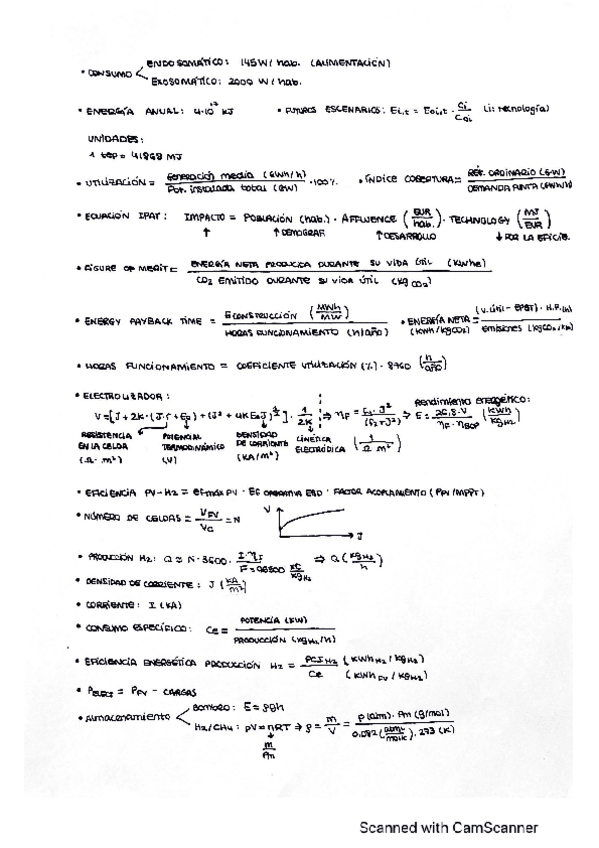 • CONSUMO < ENDOSOMÁTICO: 145W/hab. (ALIMENTACIÓN)
EXOSOMÁTICO: 2000 W/hab.
• ENERGÍA ANUAL: 4·10¹⁷ KJ • FUTUROS ESCENARIOS: Ei,t = Eoi,t · Ci/Coi (i: tecnología)
UNIDADES:
1 tep = 41868 MJ
• UTILIZACIÓN = Generación media (GWh/h) / Pot. instalada total (GW) · 100% • ÍNDICE COBERTURA = RÉG. ORDINARIO (GW) / DEMANDA PUNTA (GWh/h)
• ECUACIÓN IPAT: IMPACTO = POBLACIÓN (hab.) · AFFLUENCE (EUR/hab.) · TECHNOLOGY (MJ/EUR)
↑ ↑DEMOGRAF ↑DESARROLLO ↓POR LA EFICIE.
• FIGURE OF MERIT = ENERGÍA NETA PRODUCIDA DURANTE SU VIDA ÚTIL (KWhe) / CO₂ EMITIDO DURANTE SU VIDA ÚTIL (Kg CO₂)
• ENERGY PAYBACK TIME = E CONSTRUCCIÓN (MWh/MW) / HORAS FUNCIONAMIENTO (h/año) • ENERGÍA NETA (KWh/KgCO₂) = (v.útil - EPBT) · H.F.(h) / emisiones (KgCO₂/KW)
• HORAS FUNCIONAMIENTO = COEFICIENTE UTILIZACIÓN (%) · 8760 (h/año)
• ELECTROLIZADOR: Rendimiento energético:
V = [J + 2K · (J·r + E₀) + (J² + 4K E₀ J)^½] · 1/2K ⇒ ηF = f₁·J²/(f₂+J²) ⇒ E = 26,8·V/ηF·ηBOP (KWh/KgH₂)
RESISTENCIA EN LA CELDA (Ω·m²) POTENCIAL TERMODINÁMICO (V) DENSIDAD DE CORRIENTE (KA/m²) CINÉTICA ELECTRÓDICA (1/Ω m²)
• EFICIENCIA PV-H₂ = ef max PV · EF · FACTOR ACOPLAMIENTO (PPV/MPPT)
• NÚMERO DE CELDAS = VPV/VC = N V J
• PRODUCCIÓN H₂: Q = N·3600 · I·ηF / F=96500 KC/KgH₂ ⇒ Q (KgH₂/h)
• DENSIDAD DE CORRIENTE: J (KA/m²)
• CORRIENTE: I (KA)
• CONSUMO ESPECÍFICO: Ce = POTENCIA (KW) / PRODUCCIÓN (KgH₂/h)
• EFICIENCIA ENERGÉTICA PRODUCCIÓN H₂ = PCI H₂ (KWh H₂/KgH₂) / Ce (KWh PV/KgH₂)
• PELECT = PPV - CARGAS
• Almacenamiento < Bombeo: E = ρgh
H₂/CH₄: pV = nRT ⇒ ρ = m/V = P(atm) · Pm (g/mol) / 0,082 (atm·l/mol·K) · 273 (K)
m/Pm
Scanned with CamScanner